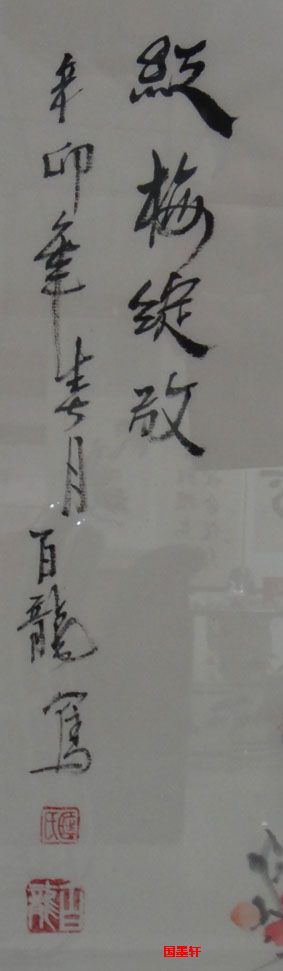 紅梅綻放
辛卯年春月百龍寫
国墨轩